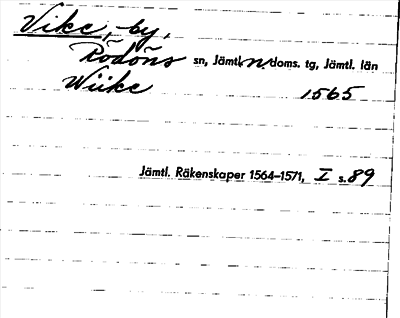 Vike, by,
Rödöns sn, Jämtl. n. doms. tg, Jämtl. län
Wiike 1565
Jämtl. Räkenskaper 1564–1571, I s. 89